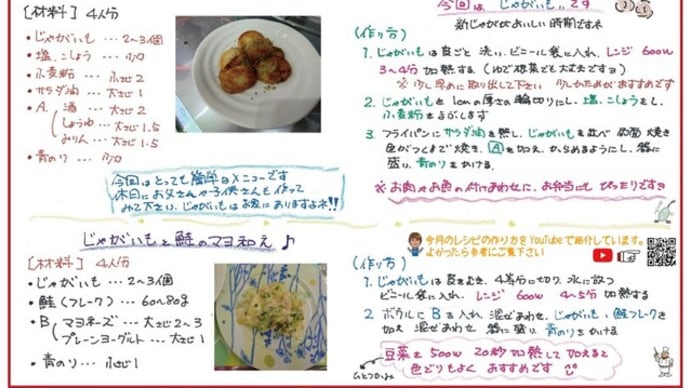 今回は じゃがいも です
新じゃががおいしい時期ですネ
[材料] 4人分
・じゃがいも … 2〜3個
・塩、こしょう … 少々
・小麦粉 … 小さじ2
・サラダ油 … 大さじ1
・A 酒 … 大さじ2
しょうゆ … 大さじ1.5
みりん … 大さじ1.5
・青のり … 少々
(作り方)
1. じゃがいもは皮ごと洗い、ビニール袋に入れ、レンジ600w
3〜4分加熱する(ゆで根菜でも大丈夫ですョ)
※少し早めに取り出して下さい 少しかためがおすすめです
2. じゃがいもを1cmの厚さの輪切りにし、塩、こしょうをし、
小麦粉をまぶします
3 フライパンにサラダ油を熱し、じゃがいもを並べ両面焼き
色がつくまで焼き、Aを加え、からめるようにし、器に
盛り、青のりをかける。
※お肉やお魚の付けあわせに、お弁当にもぴったりですョ
今回はとっても簡単なメニューです
休日にお父さんや子供さんも作って
みて下さい、じゃがいもはお腹にたまりますよネ!!
じゃがいもと鮭のマヨ和え♪
[材料] 4人分
・じゃがいも … 2〜3個
・鮭(フレーク) … 60〜80g
・B マヨネーズ … 大さじ2〜3
プレーンヨーグルト … 大さじ1
・青のり … 小さじ1
今月のレシピの作り方をYouTubeで紹介しています。
よかったら参考にご覧下さい
(作り方)
1. じゃがいもは皮をむき、4等分に切り、水に放つ
ビニール袋に入れ、レンジ 600w 4〜5分 加熱する
2 ボウルにBを入れ、混ぜあわせ、じゃがいも、鮭フレークを
加え 混ぜあわせ、器に盛り、青のりをかける
豆菜を500w 20秒加熱して加えると
色どりもよくおすすめです